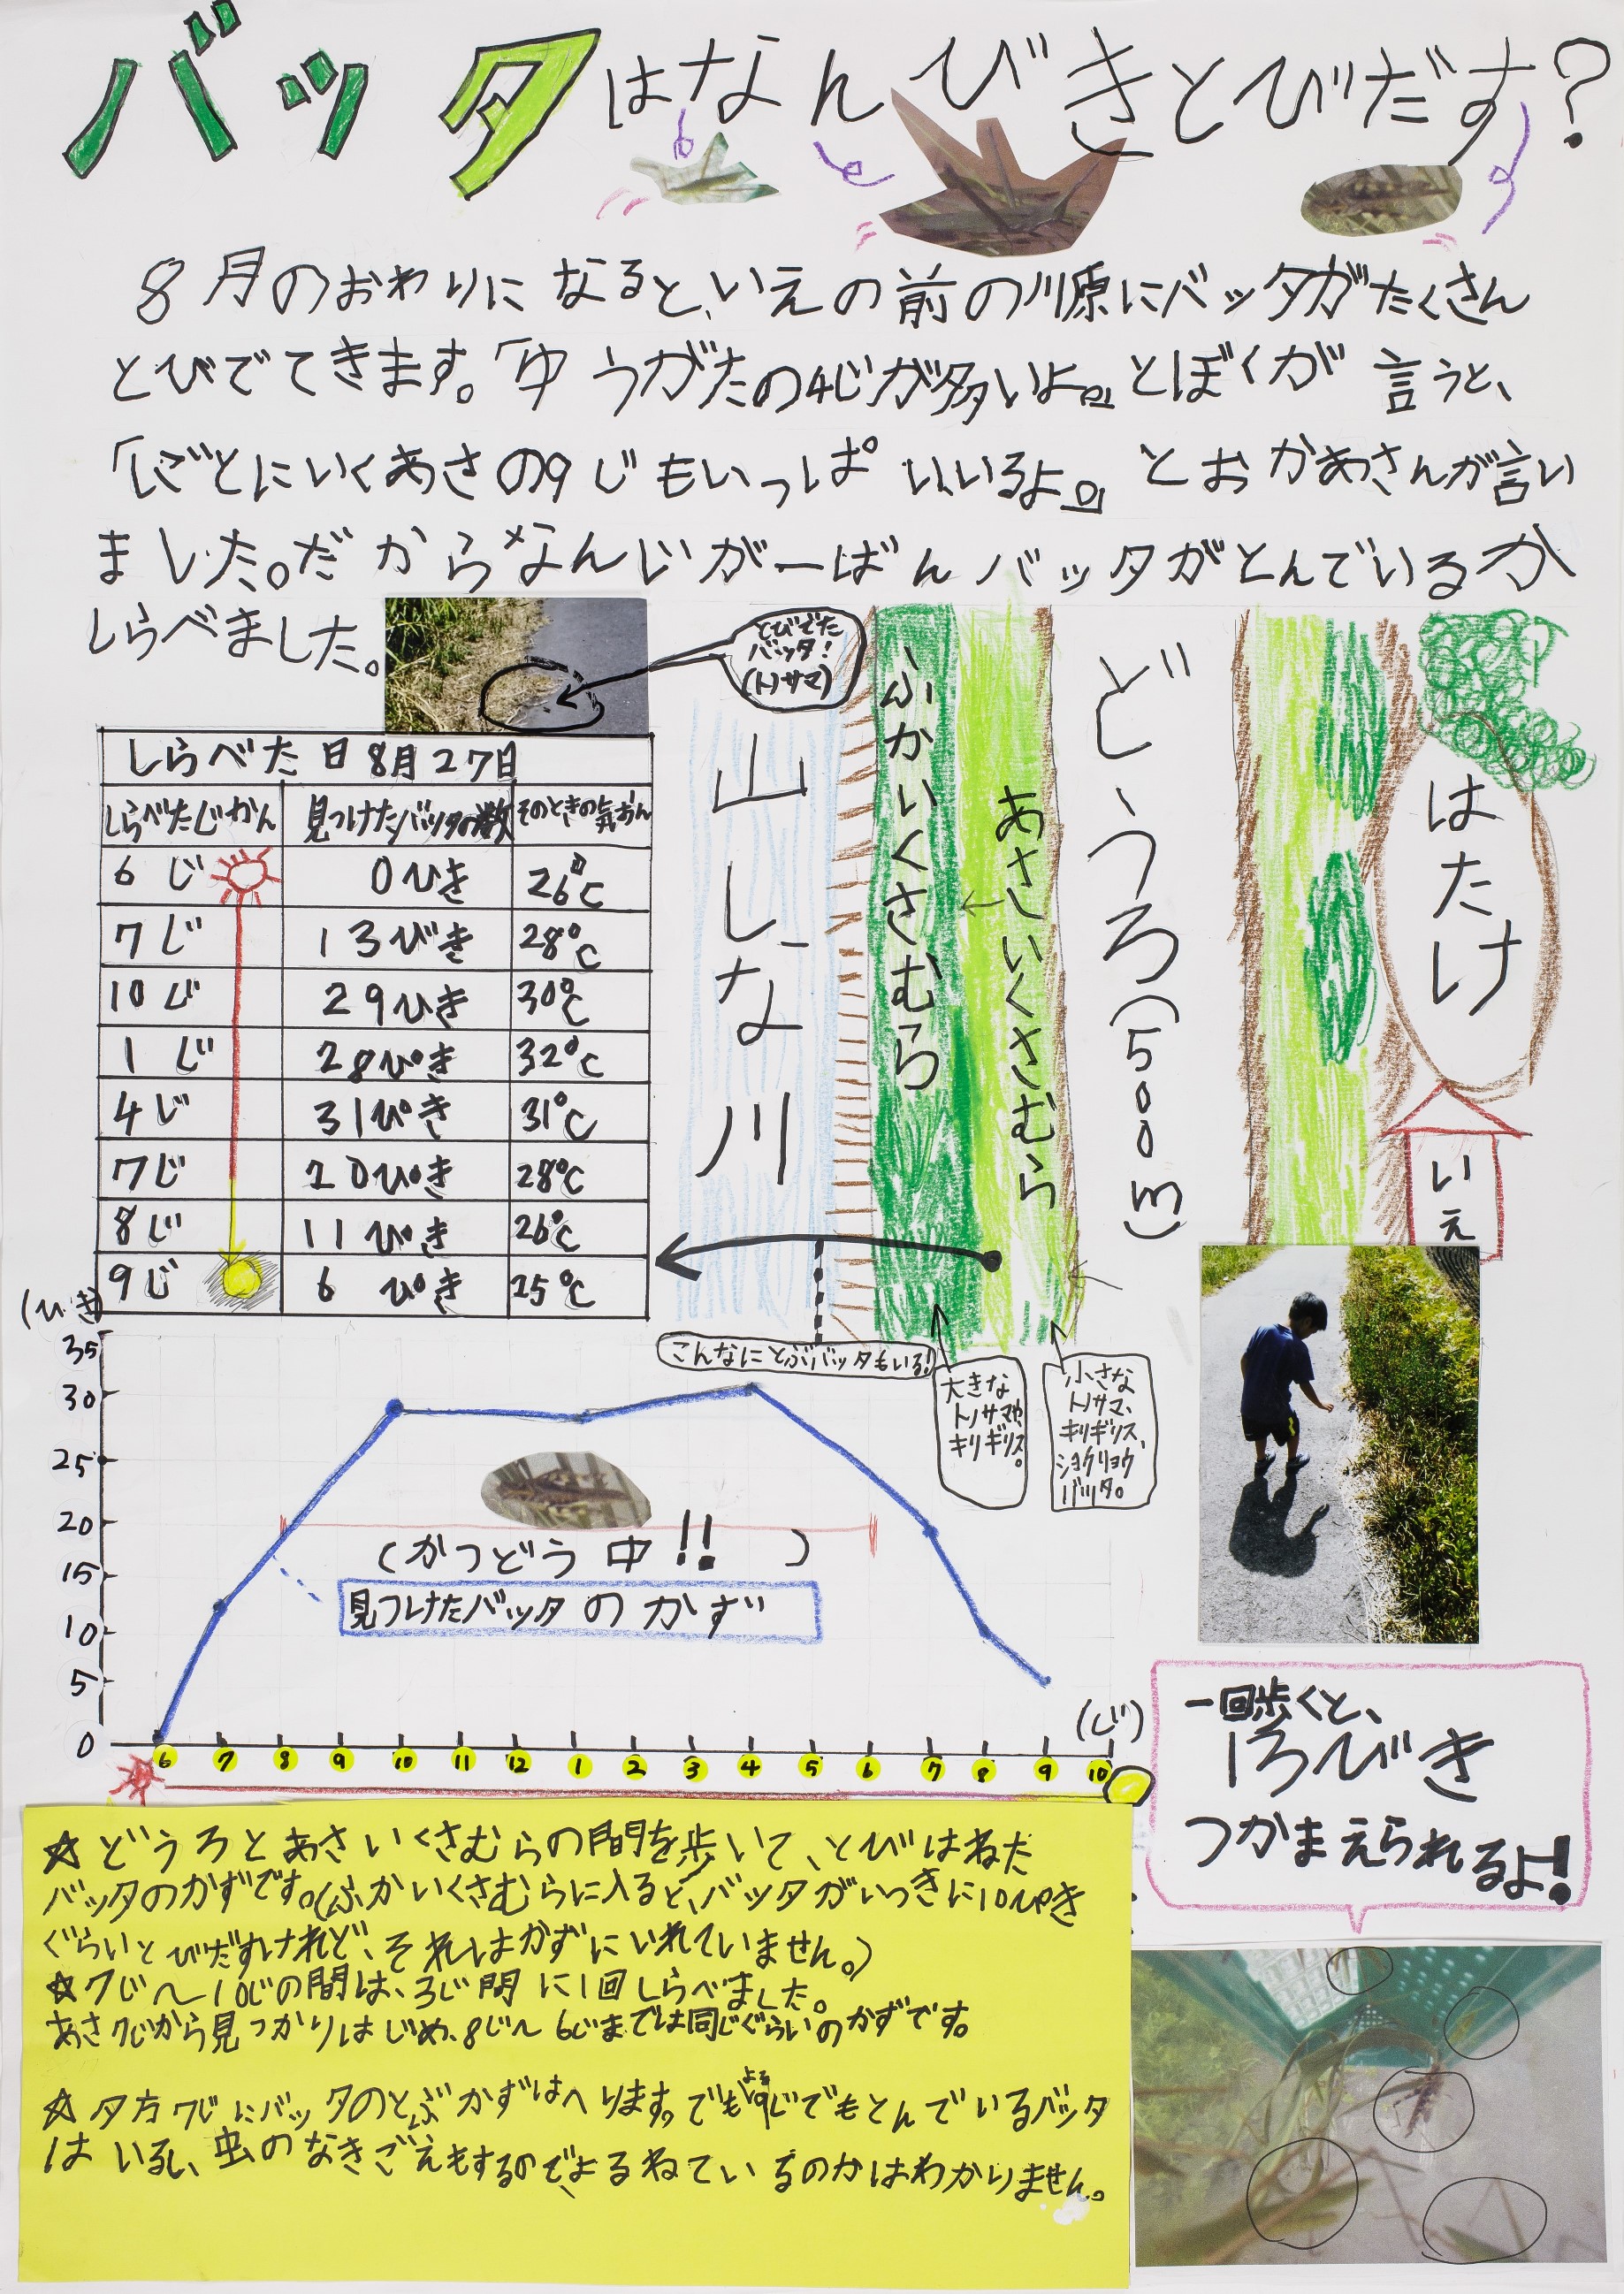 バッタはなんびきとびだす?
8月のおわりになると、いえの前の川原にバッタがたくさん
とびでてきます。「ゆうがたの4じが多いよ。」とぼくが言うと、
「しごとにいくあさの9じもいっぱいいるよ。」とおかあさんが言い
ました。だからなんじが一ばんバッタがとんでいるか
しらべました。
とびでた
バッタ!
(トノサマ)
しらべた日8月27日
しらべたじかん 見つけたバッタの数 そのときの気おん
6じ 0ひき 26℃
7じ 13びき 28℃
10じ 29ひき 30℃
1じ 28ぴき 32℃
4じ 31ぴき 31℃
7じ 20ぴき 28℃
8じ 11ぴき 26℃
9じ 6ぴき 25℃
山しな川
ふかいくさむら
あさいくさむら
どうろ(500m)
はたけ
いえ
こんなにとぶバッタもいる!
大きな
トノサマや
キリギリス。
小さな
トノサマ、
キリギリス、
ショウリョウ
バッタ。
(ひき)
35
30
25
20
15
10
5
0
(かつどう中!!)
見つけたバッタのかず
(じ)
6 7 8 9 10 11 12 1 2 3 4 5 6 7 8 9 10
一回歩くと、
13びき
つかまえられるよ!
☆どうろとあさいくさむらの間を歩いて、とびはねた
バッタのかずです。(ふかいくさむらに入ると、バッタがいっきに10ぴき
ぐらいとびだすけれど、それはかずにいれていません。)
☆7じ〜10じの間は、3じ間に1回しらべました。
あさ7じから見つかりはじめ、8じ〜6じまでは同じぐらいのかずです。
☆夕方7じにバッタのとぶかずはへります。でもよる9じでもとんでいるバッタ
はいるし、虫のなきごえもするのでよるねているのかはわかりません。